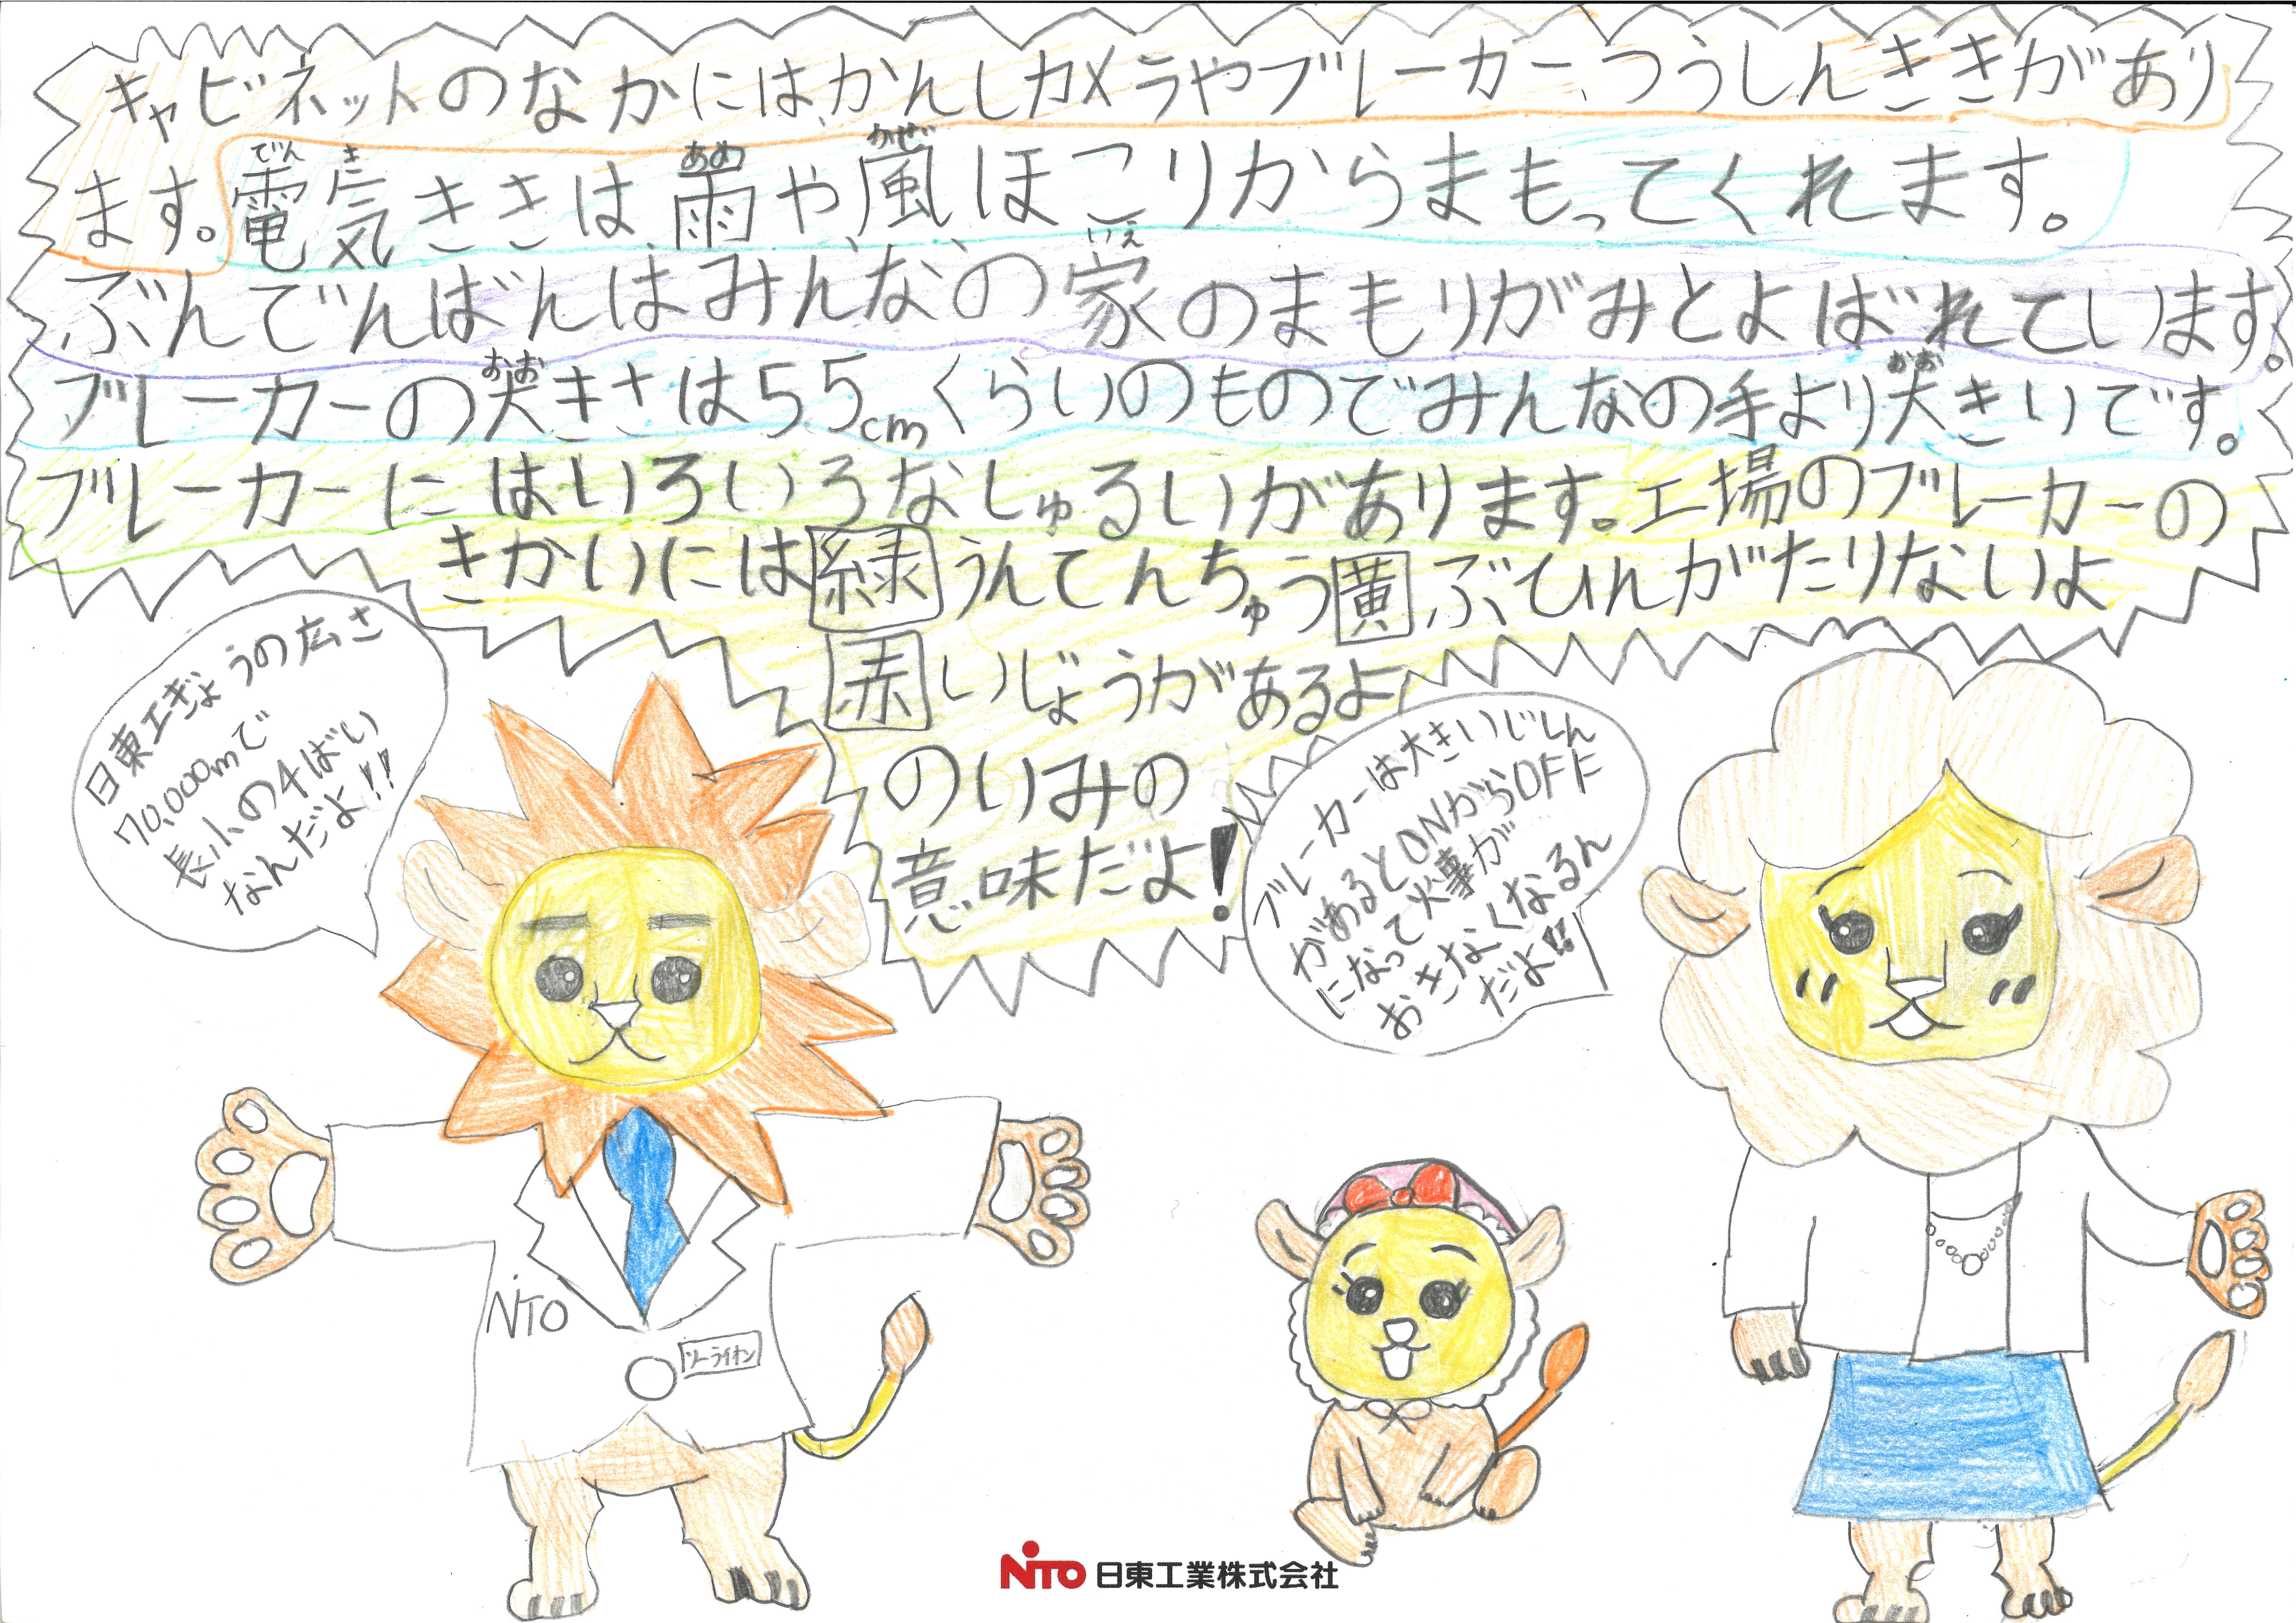 キャビネットのなかには、かんしカメラやブレーカー、つうしんききがあり
ます。電気ききは、雨や風、ほこりからまもってくれます。
でん き あめ かぜ
ぶんでんばんはみんなの家のまもりがみとよばれています。
いえ
ブレーカーの大きさは55cmくらいのものでみんなの手より大きいです。
おお おお
ブレーカーにはいろいろなしゅるいがあります。工場のブレーカーの
きかいには緑うんてんちゅう黄ぶひんがたりないよ
赤いじょうがあるよ
のいみの
意味だよ!
日東工ぎょうの広さ
70,000mで
長小の4ばい
なんだよ!!
ブレーカーは大きいじしん
があるとONからOFF
になって火事が
おきなくなるん
だよ!!
NITO
ソーライオン
NITO 日東工業株式会社